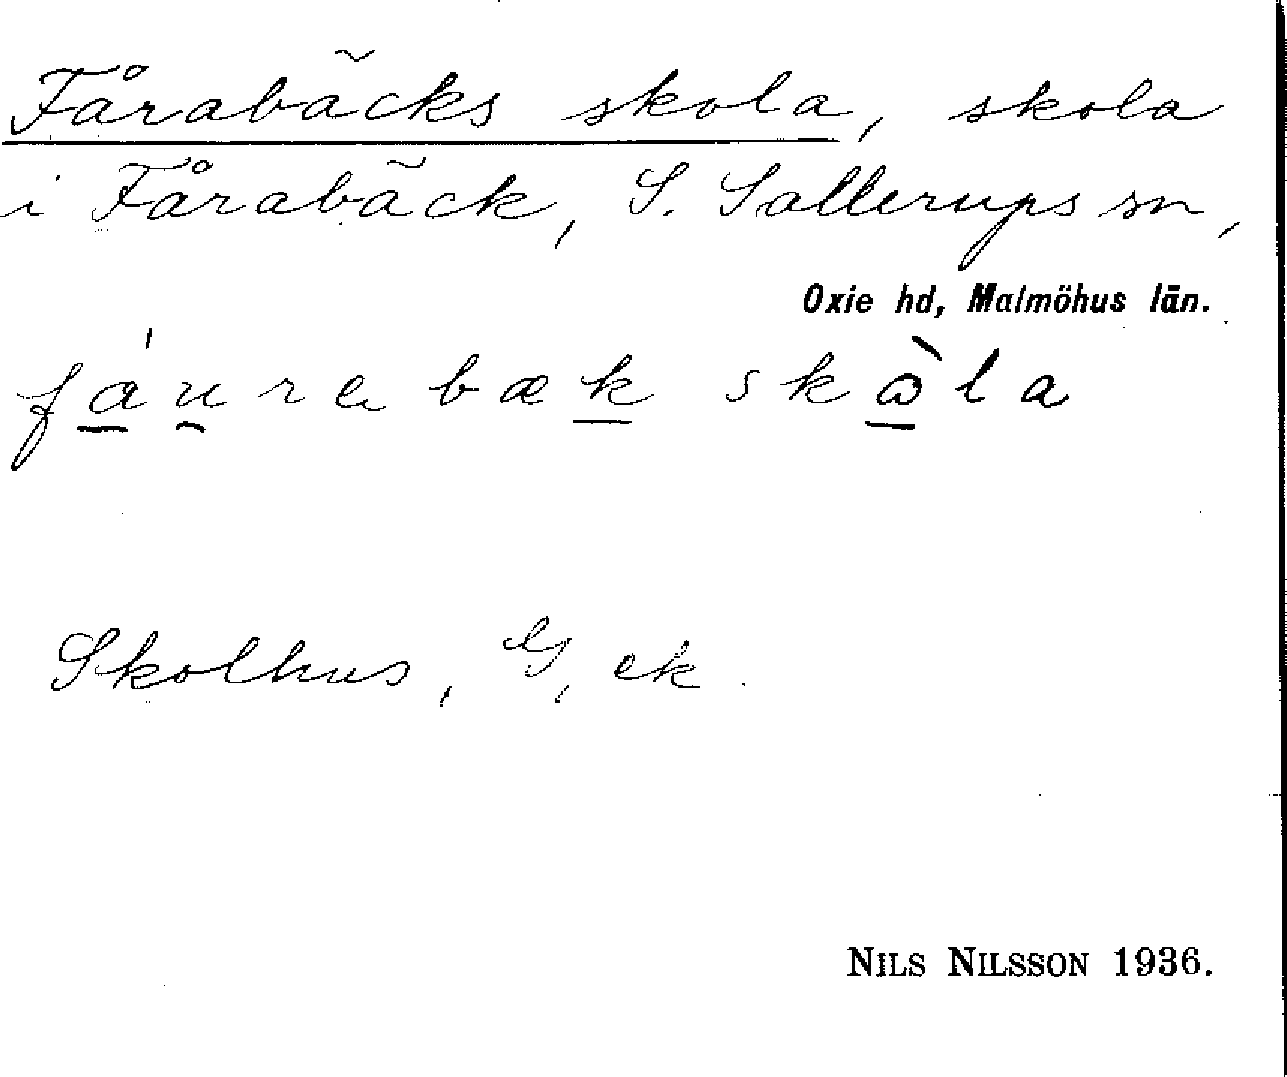 Fårabäcks skola, skola
i Fårabäck, S. Sallerups sn,
Oxie hd, Malmöhus län.
fáu̯rabæk skòla
Skolhus, G, ek.
NILS NILSSON 1936.